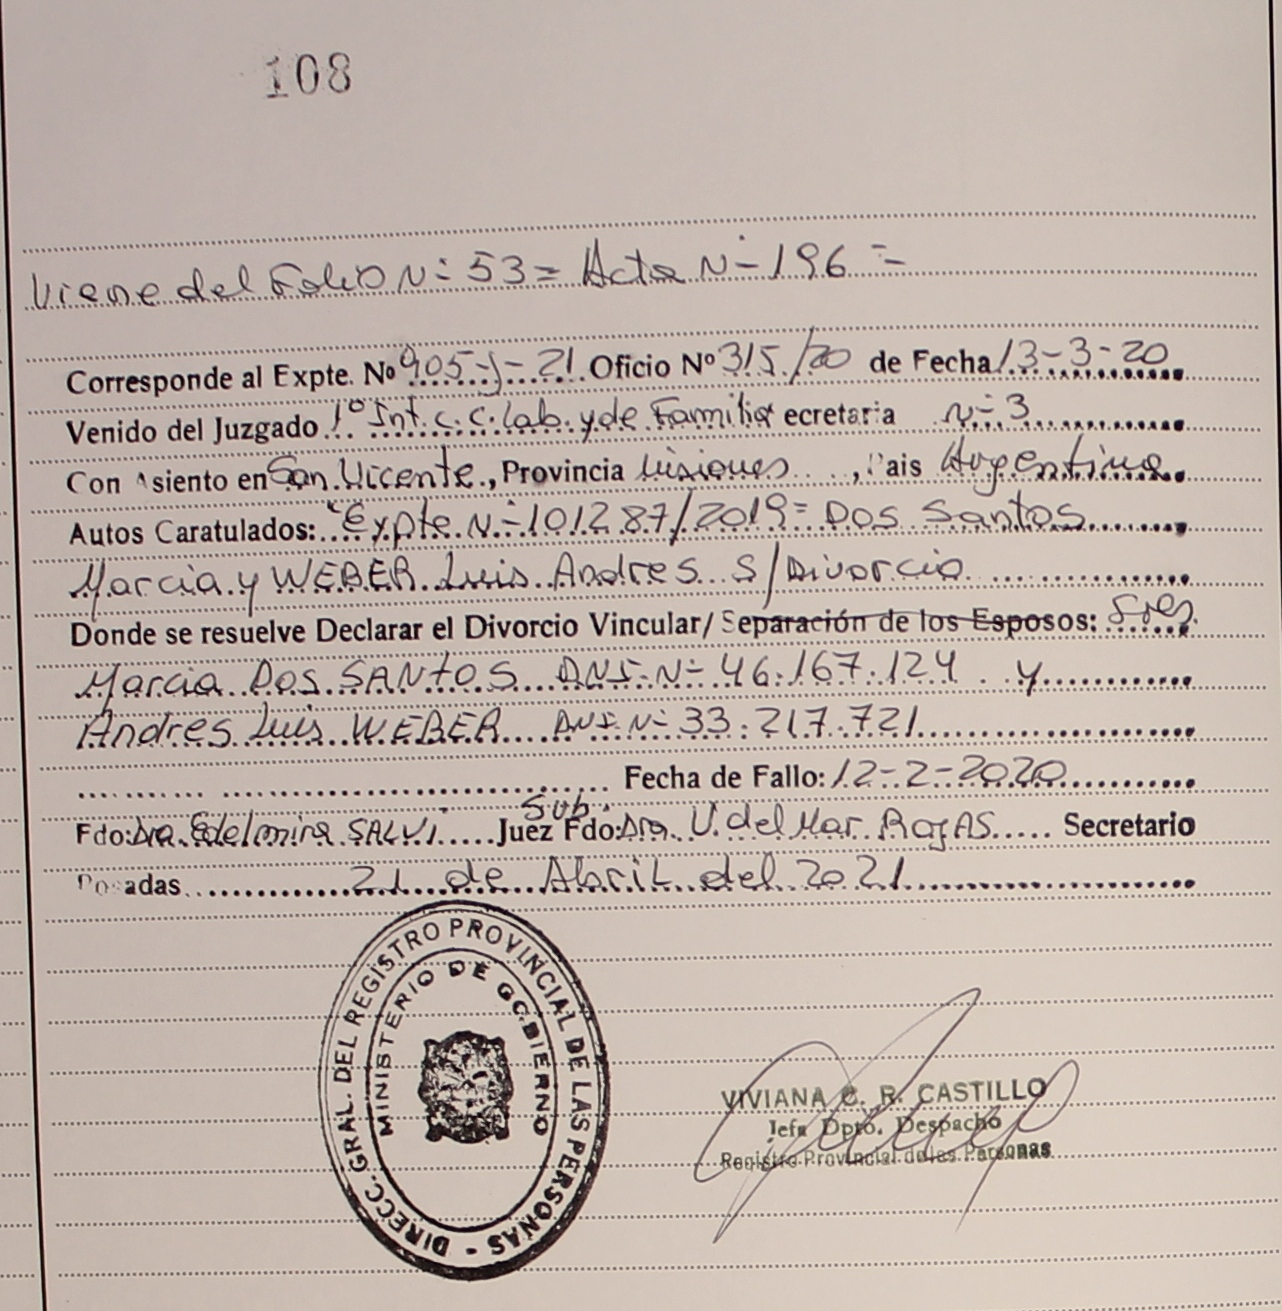 108
Viene del Folio N= 53= Acta N= 196 =
Corresponde al Expte. Nº 905-J-21 Oficio Nº 315/20 de Fecha 13-3-20
Venido del Juzgado 1º Int. C. C. Lab. y de Familia ecretaria N= 3
Con Asiento en San Vicente, Provincia Misiones, Pais Argentina
Autos Caratulados: "Expte N=101287/2019= Dos Santos
Marcia y WEBER Luis Andres S/Divorcio
Donde se resuelve Declarar el Divorcio Vincular/ Separación de los Esposos: Sres
Marcia Dos SANTOS DNI N= 46.167.124 y
Andres Luis WEBER DNI N= 33.217.721
Fecha de Fallo: 12-2-2020
Fdo: Dra. Edelmira SALVI Juez Sub. Fdo: Dra. V. del Mar Rojas Secretario
Posadas 21 de Abril del 2021
DIRECC. GRAL. DEL REGISTRO PROVINCIAL DE LAS PERSONAS -
MINISTERIO DE GOBIERNO
VIVIANA C. R. CASTILLO
Jefa Dpto. Despacho
Registro Provincial de las Personas